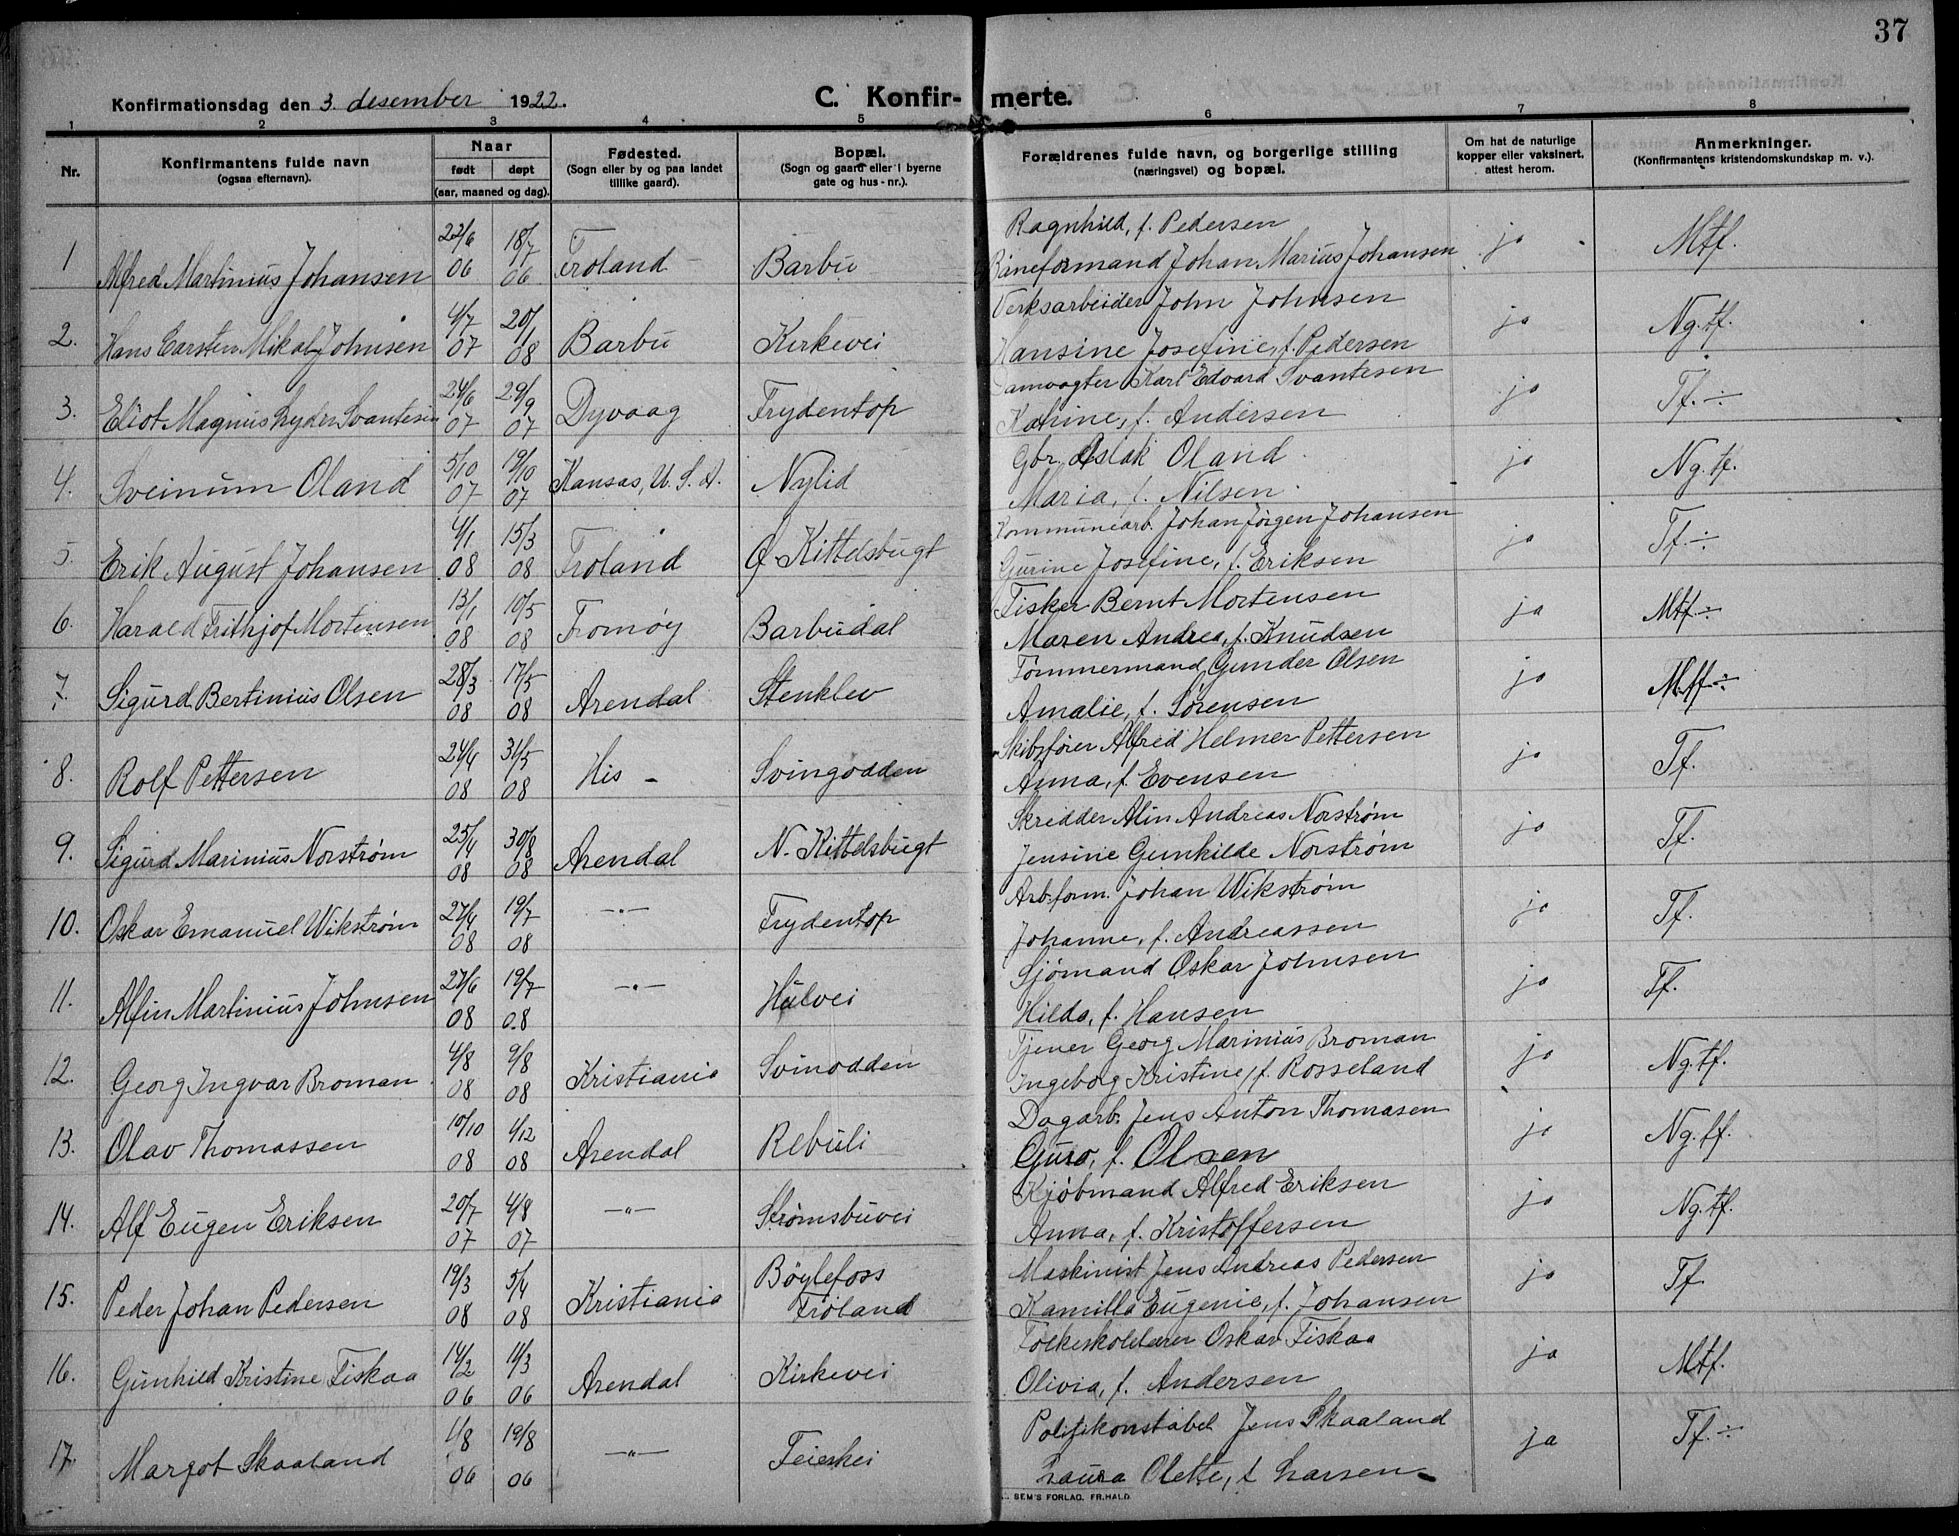 37
Konfirmationsdag den 3. desember 1922.
C. Konfir- merte.
1 2 3 4 5 6 7 8
Nr.
Konfirmantens fulde navn
(ogsaa efternavn).
Naar
født døpt
(aar, maaned og dag).
Fødested.
(Sogn eller by og paa landet
tillike gaard).
Bopæl.
(Sogn og gaard eller i byerne
gate og hus-nr.).
Forældrenes fulde navn, og borgerlige stilling
(næringsvei) og bopæl.
Om hat de naturlige
kopper eller vaksinert,
attest herom.
Anmerkninger.
(Konfirmantens kristendomskundskap m. v.).
Ragnhild, f. Pedersen
1 Alfred Martinius Johansen 22/6 06 18/7 06 Froland Barbu Baneformand Johan Marius Johansen ja Mtf.
Verksarbeider John Johnsen
2. Hans Carsten Mikal Johnsen 4/7 07 20/1 08 Barbu Kirkevei Hansine Josefine, f. Pedersen ja Ng. tf.
Karl Edvard Svantesen
3. Eliot Magnus Lyder Svantesen 24/6 07 29/9 07 Dyvaag Frydentop Katrine, f. Andersen ja Tf. ÷
Gbr. Aslak Oland
4. Sveinum Oland 5/10 07 19/10 07 Kansas, U. S. A. Nylid Maria, f. Nilsen ja Ng. tf.
Kommunearb. Johan Jörgen Johansen
5. Erik August Johansen 4/1 08 15/3 08 Froland Ø Kittelsbugt Gurine Josefine, f. Eriksen ja Tf. ÷
Fisker Bernt Mortensen
6. Harald Frithjof Mortensen 13/1 08 10/5 08 Tromøy Barbudal Maren Andrea, f. Knudsen ja Mtf. ÷
Tømmermand Gunder Olsen
7. Sigurd Bertinius Olsen 28/3 08 17/5 08 Arendal Stenklev Amalie, f. Sørensen ja Mtf ÷
Skibsfører Alfred Helmer Pettersen
8. Rolf Pettersen 24/4 08 31/5 08 His - Svingodden Anna, f. Evensen ja Tf.
Skredder Alin Andreas Norstrøm
9. Sigurd Marinius Norstrøm 25/4 08 30/8 08 Arendal N. Kittelsbugt Jensine Gunhilde Norstrøm ja Tf.
Arb.form. Johan Wikstrøm
10. Oskar Emanuel Wikstrøm 27/4 08 19/7 08 —"— Frydentop Johanne, f. Andreassen ja Tf.
Sjömand Oskar Johnsen
11. Alfin Martinius Johnsen 27/6 08 19/7 08 —"— Hulvei Hilda, f. Hansen ja Tf.
Tjener Georg Marinius Broman
12. Georg Ingvar Broman 4/8 08 9/8 08 Kristiania Svinodden Ingeborg Kristine, f. Rosseland ja Ng. tf.
Dagarb. Jens Anton Thomasen
13. Olav Thomassen 10/10 08 4/12 08 Arendal Rebuli Guro, f. Olsen ja Ng. tf.
Kjöbmand Alfred Eriksen
14. Alf Eugen Eriksen 20/7 07 4/8 07 —"— Strømsbuvei Anna, f. Kristoffersen ja Ng. tf.
Maskinist Jens Andreas Pedersen
15. Peder Johan Pedersen 19/3 08 5/4 08 Kristiania Böylefoss Froland Kamilla Eugenie, f. Johansen ja Tf.
Folkeskolelærer Oskar Fiskaa
16. Gunhild Kristine Fiskaa 14/2 06 11/3 06 Arendal Kirkevei Olivia, f. Andersen ja Mtf.
Politikonstabel Jens Skaaland
17. Margot Skaaland 1/8 06 19/8 06 —"— Feierhei Laura Olette, f. Larsen ja Tf. ÷
SEM'S FORLAG. FR.HALD.